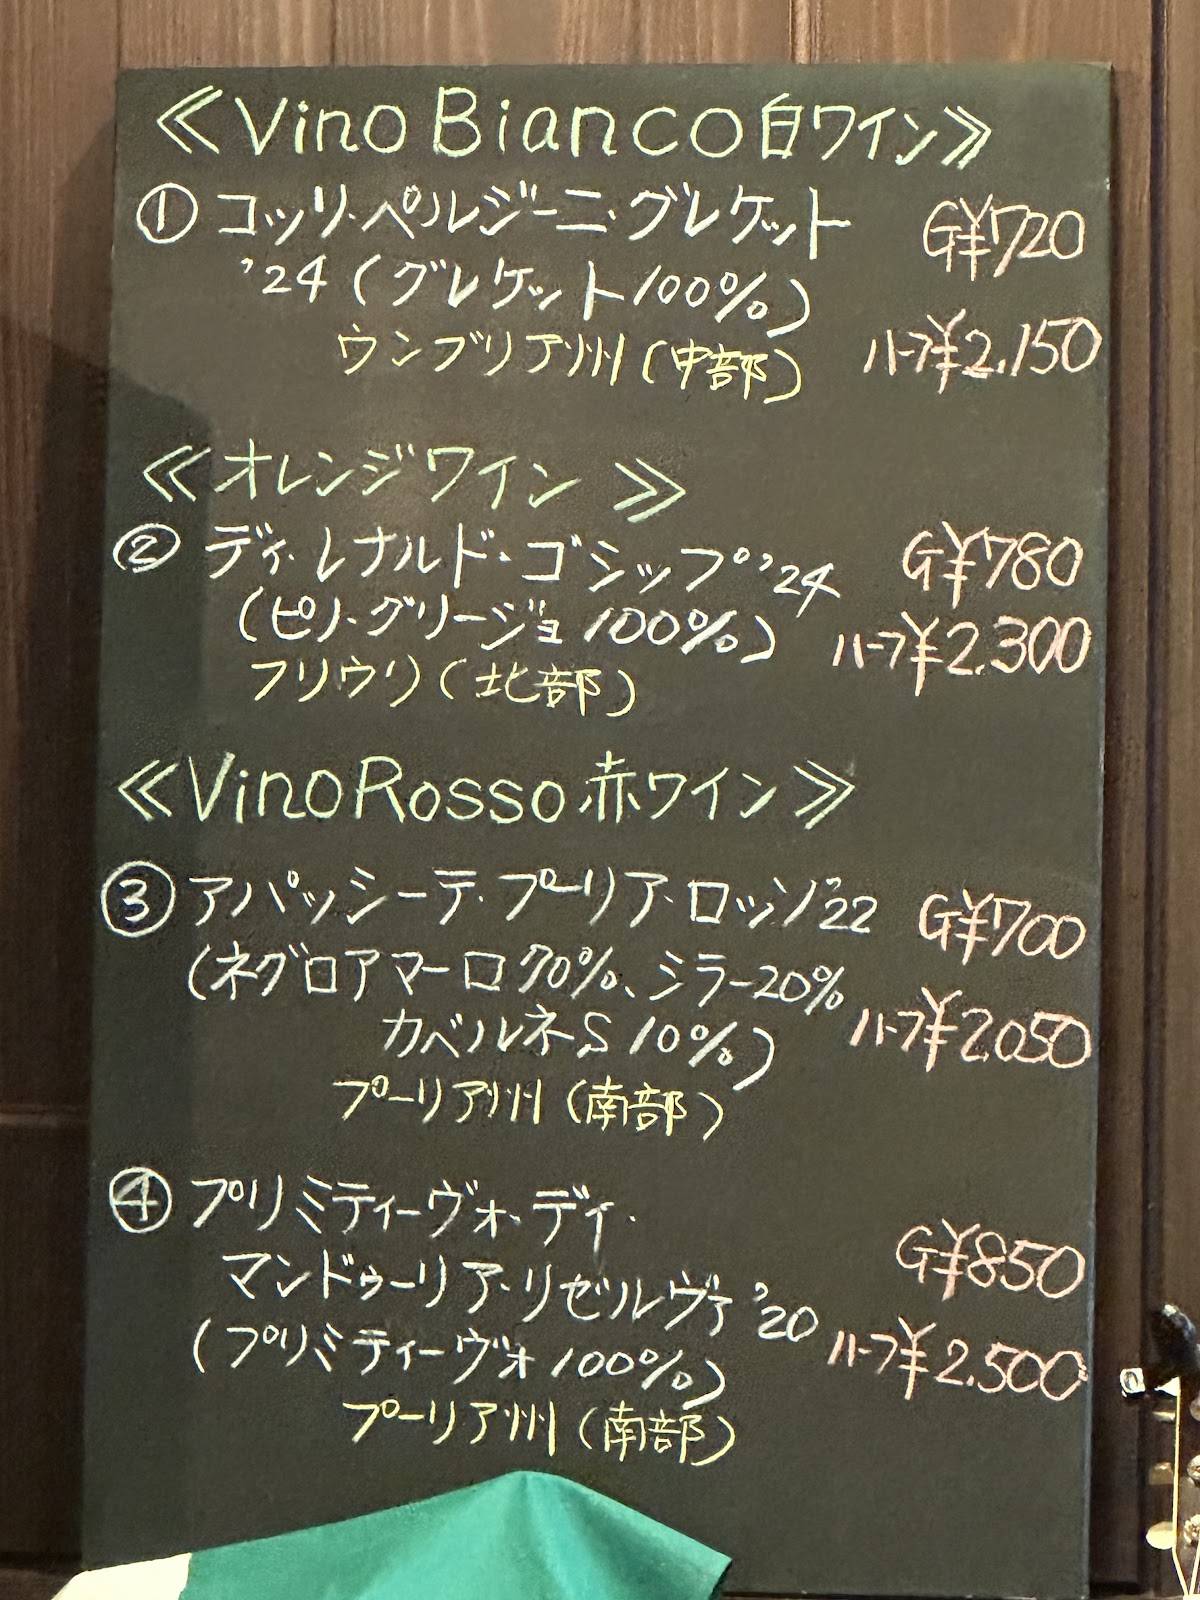 ≪Vino Bianco 白ワイン≫
① コッリ・ペルジーニ・グレケット G¥720
'24 (グレケット100%)
ウンブリア州 (中部) ハーフ¥2.150
≪オレンジワイン≫
② ディ・レナルド・ゴシップ '24 G¥780
(ピノ・グリージョ 100%) ハーフ¥2.300
フリウリ (北部)
≪Vino Rosso 赤ワイン≫
③ アパッシーテ・プーリア・ロッソ'22 G¥700
(ネグロアマーロ70%、シラー20%
カベルネS 10%) ハーフ¥2.050
プーリア州 (南部)
④ プリミティーヴォ・ディ・
マンドゥーリア・リゼルヴァ '20 G¥850
(プリミティーヴォ 100%) ハーフ¥2.500
プーリア州 (南部)